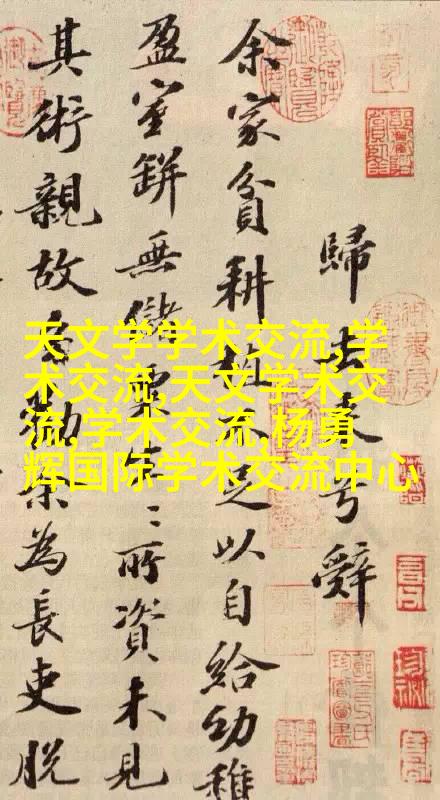 歸去来兮辭
余家貧耕植不足以自給幼稚
盈室缾無儲粟生〻所資未見
其術親故多勸余為長吏脱
天文学学术交流,学
术交流,天文学术交
流,学术交流,杨勇
辉国际学术交流中心